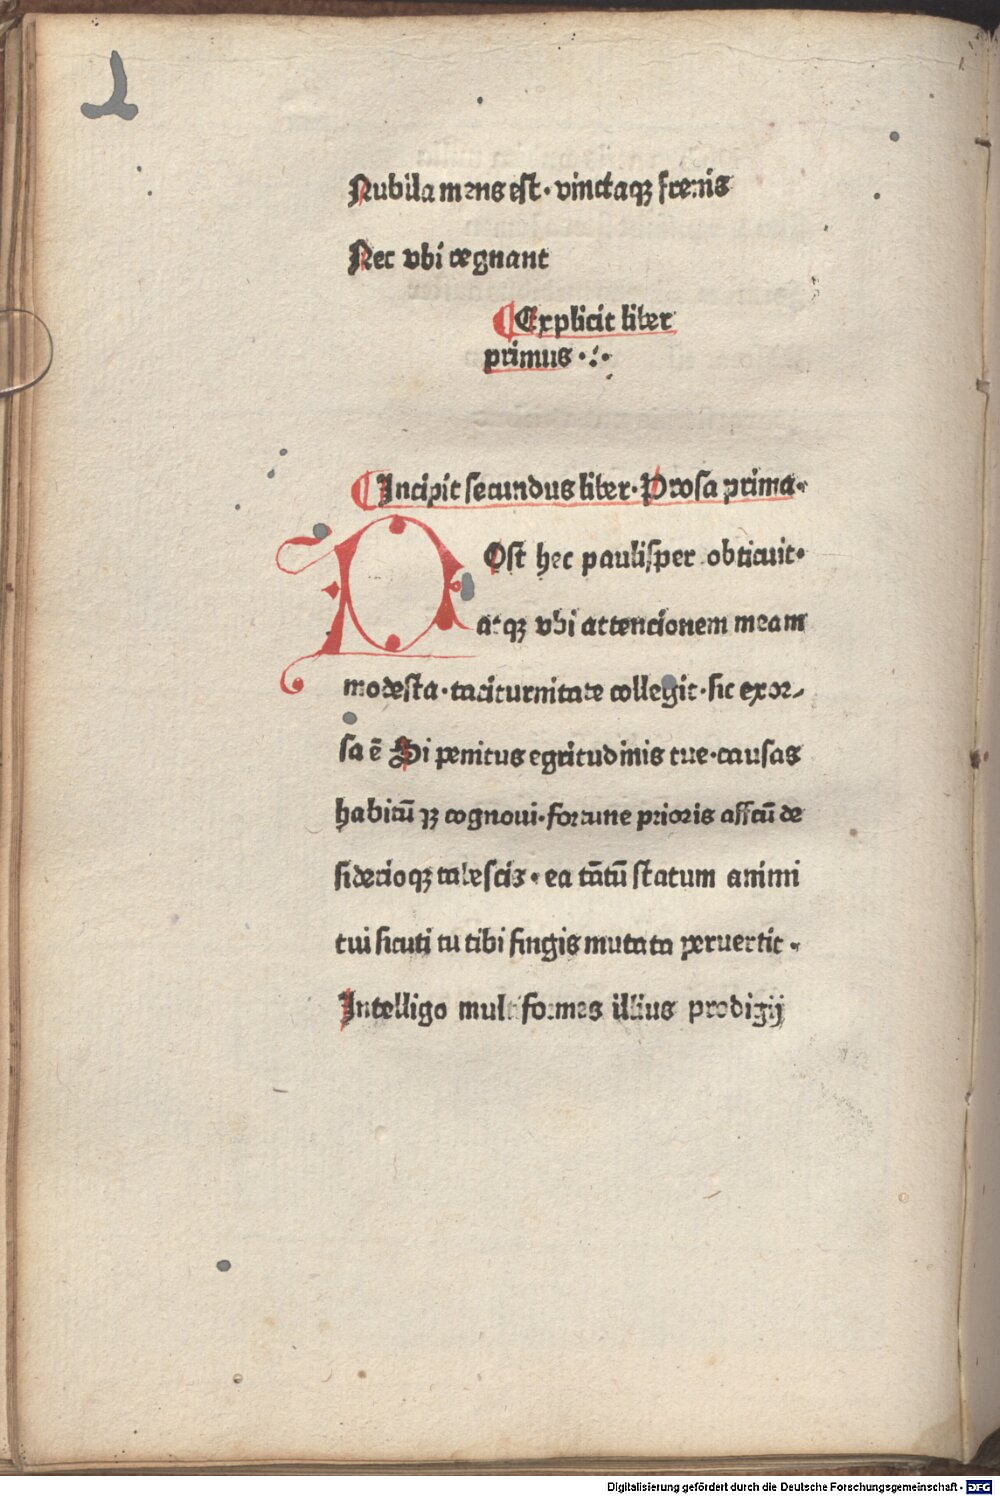 Nubila mens est · vinctaqꝫ frenis
Nec vbi regnant
Explicit liber
primus
Incipit secundus liber · Prosa prima ·
POst hec paulisper obticuit ·
atqꝫ vbi attencionem meam
modesta · taciturnitate collegit · sic exor-
sa ē Si penitus egritudinis tue · causas
habitū qꝫ cognoui · fortune prioris affcū de
siderioqꝫ tabescis · ea tātū statum animi
tui sicuti tu tibi fingis mutata peruertit ·
Intelligo multiformes illius prodigij
Digitalisierung gefördert durch die Deutsche Forschungsgemeinschaft - DFG